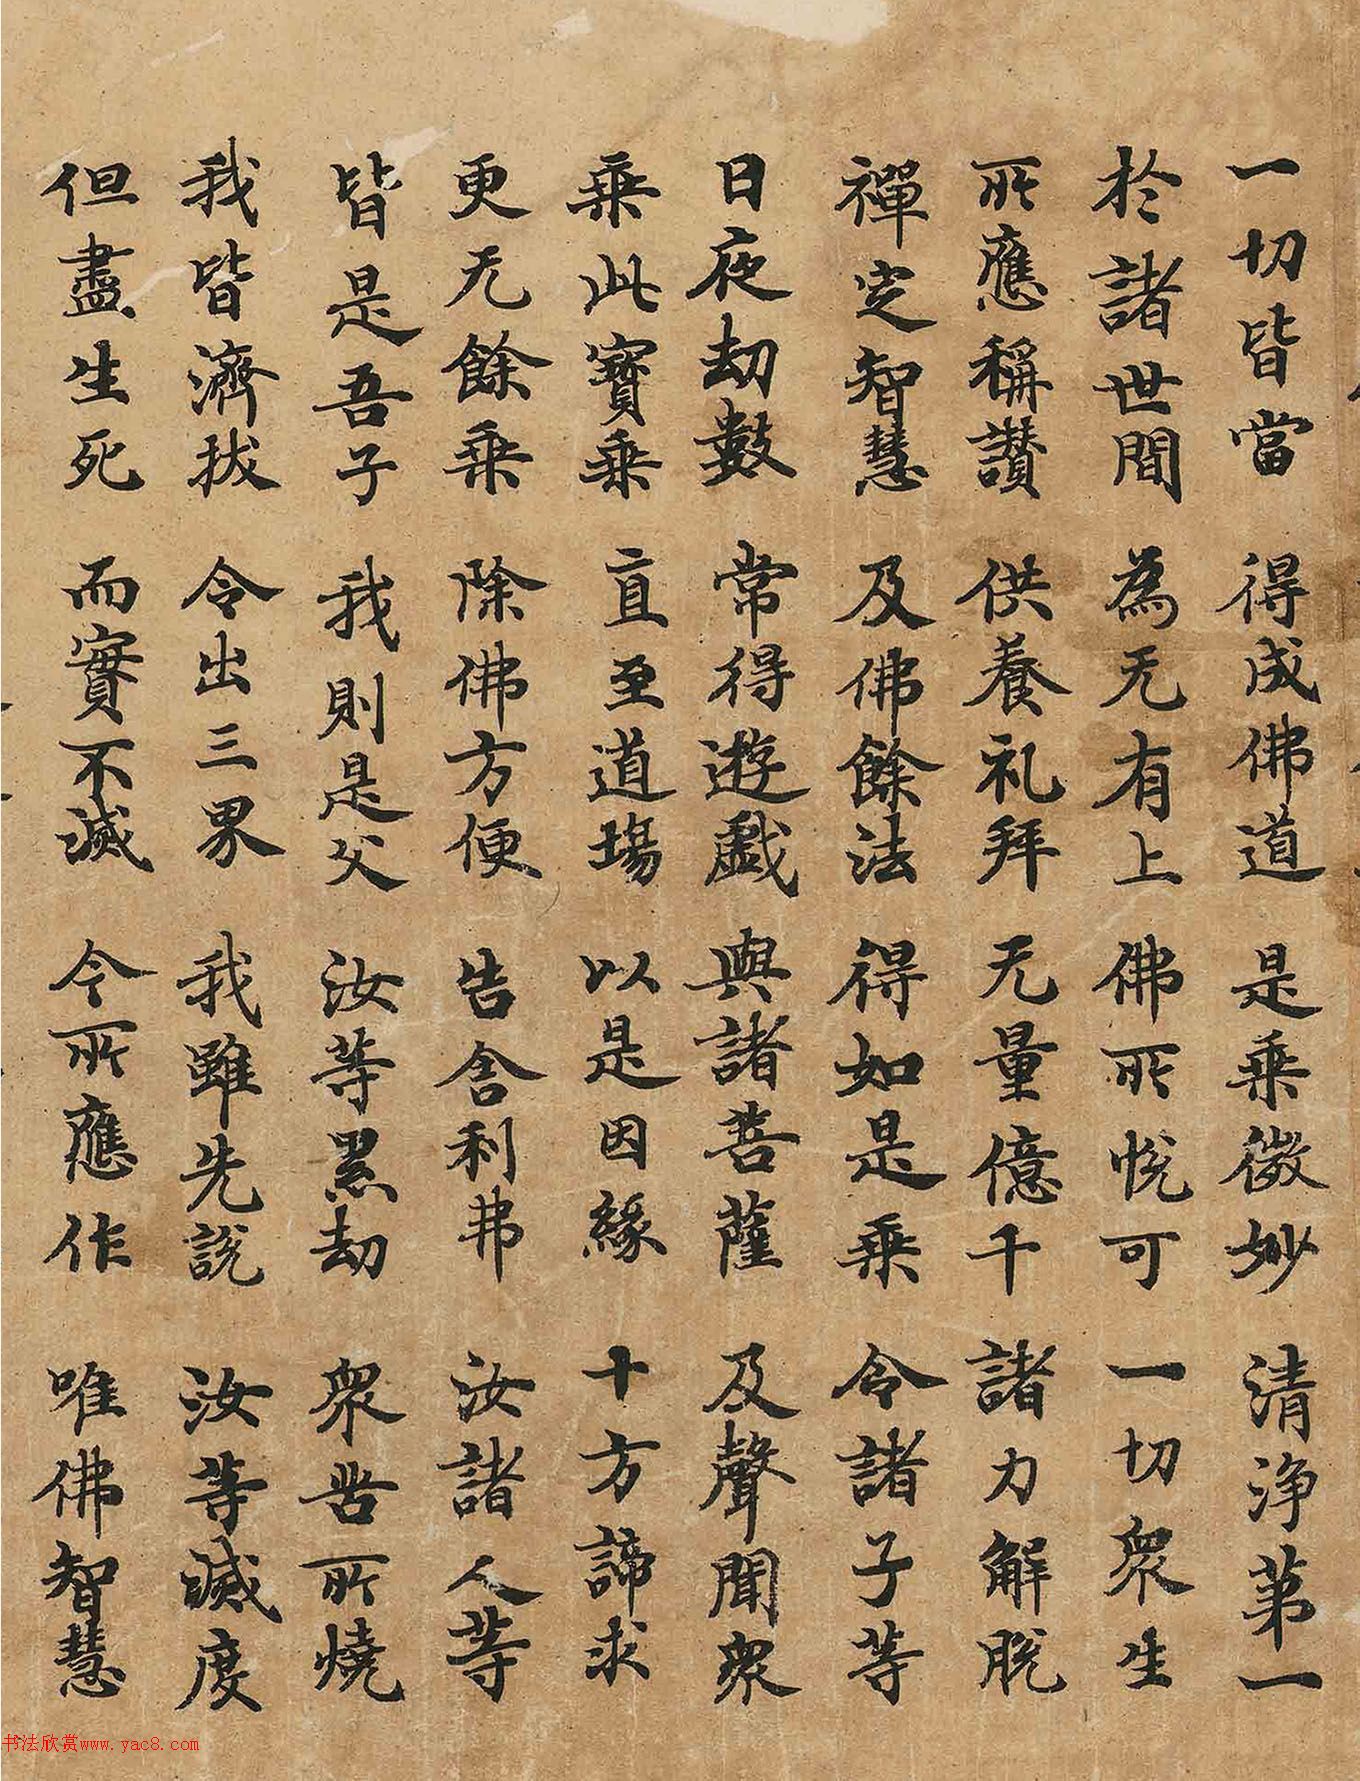 一切皆當 得成佛道 是乘微妙 清淨第一
於諸世間 為无有上 佛所悅可 一切衆生
所應稱讃 供養礼拜 无量億千 諸力解脫
禪定智慧 及佛餘法 得如是乘 令諸子等
日夜劫數 常得遊戲 與諸菩薩 及聲聞衆
乘此寶乘 直至道場 以是因緣 十方諦求
更无餘乘 除佛方便 告舍利弗 汝諸人等
皆是吾子 我則是父 汝等累劫 衆苦所燒
我皆濟拔 令出三界 我雖先說 汝等滅度
但盡生死 而實不滅 今所應作 唯佛智慧
书法欣赏www.yac8.com